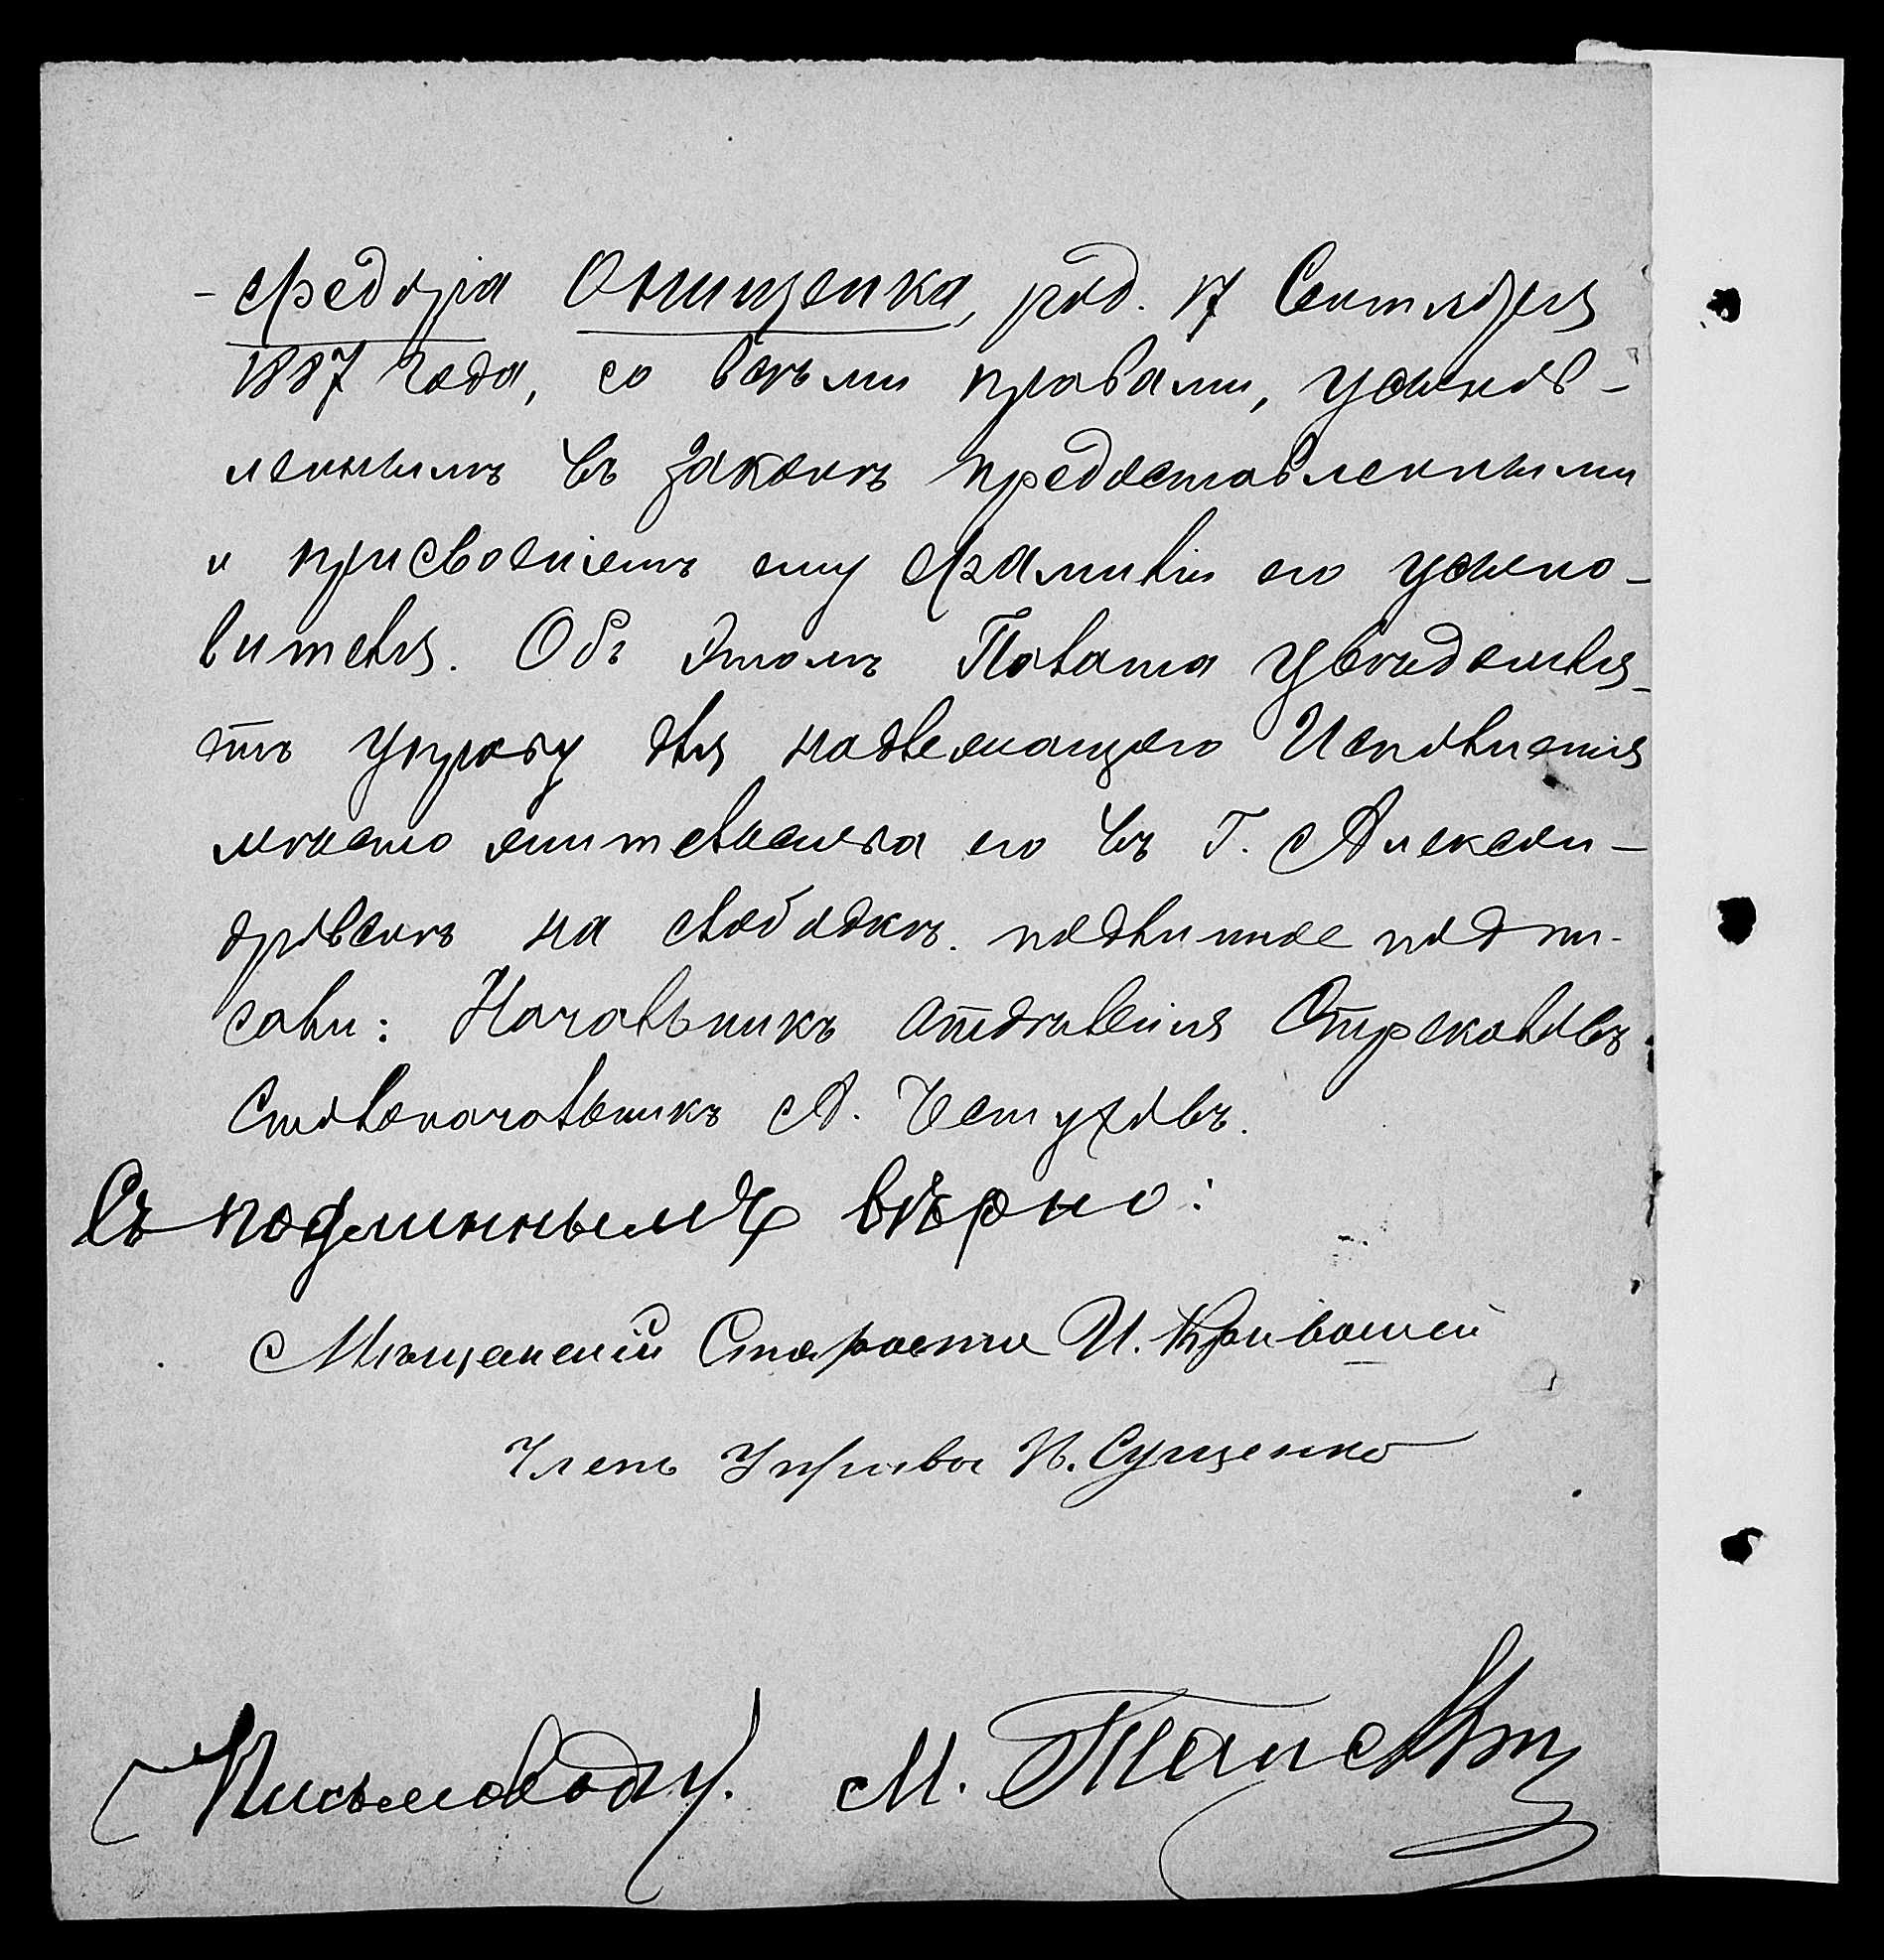 - Федора Онищенка, род. 17 Сентября
1887 года, со всѣми правами, усынов-
леннымъ въ законѣ предоставленными
и присвоеніемъ ему фамиліи его усыно-
вителя. Объ этомъ Палата увѣдомля-
етъ управу для надлежащаго Исполненія
мѣсто жительства его въ г. Алексан-
дровскѣ на слободкѣ. подлинное подпи-
сали: Начальникъ отдѣленія Стрекаловъ
Столоначальникъ А. Чемуховъ.
Съ подлиннымъ вѣрно:
Мѣщанскій Староста И. Кривошей
Членъ Управы И. Сущенко
Письмовод. М.